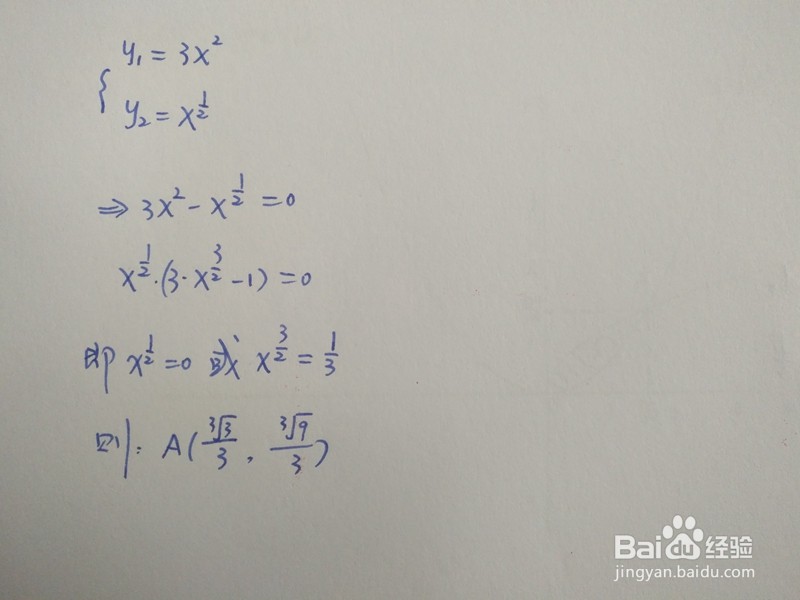 y₁ = 3x²
y₂ = x^{1/2}
⇒ 3x² - x^{1/2} = 0
x^{1/2}·(3·x^{3/2} - 1) = 0
即 x^{1/2} = 0 或 x^{3/2} = 1/3
则: A(∛3/3, ∛9/3)
Baidu经验
jingyan.baidu.com